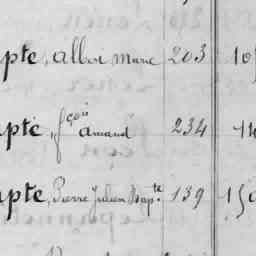 pte, Albor Marie 203 10
pte, fçois Amand 234 14
pte, Pierre Julien Bapte. 139 150